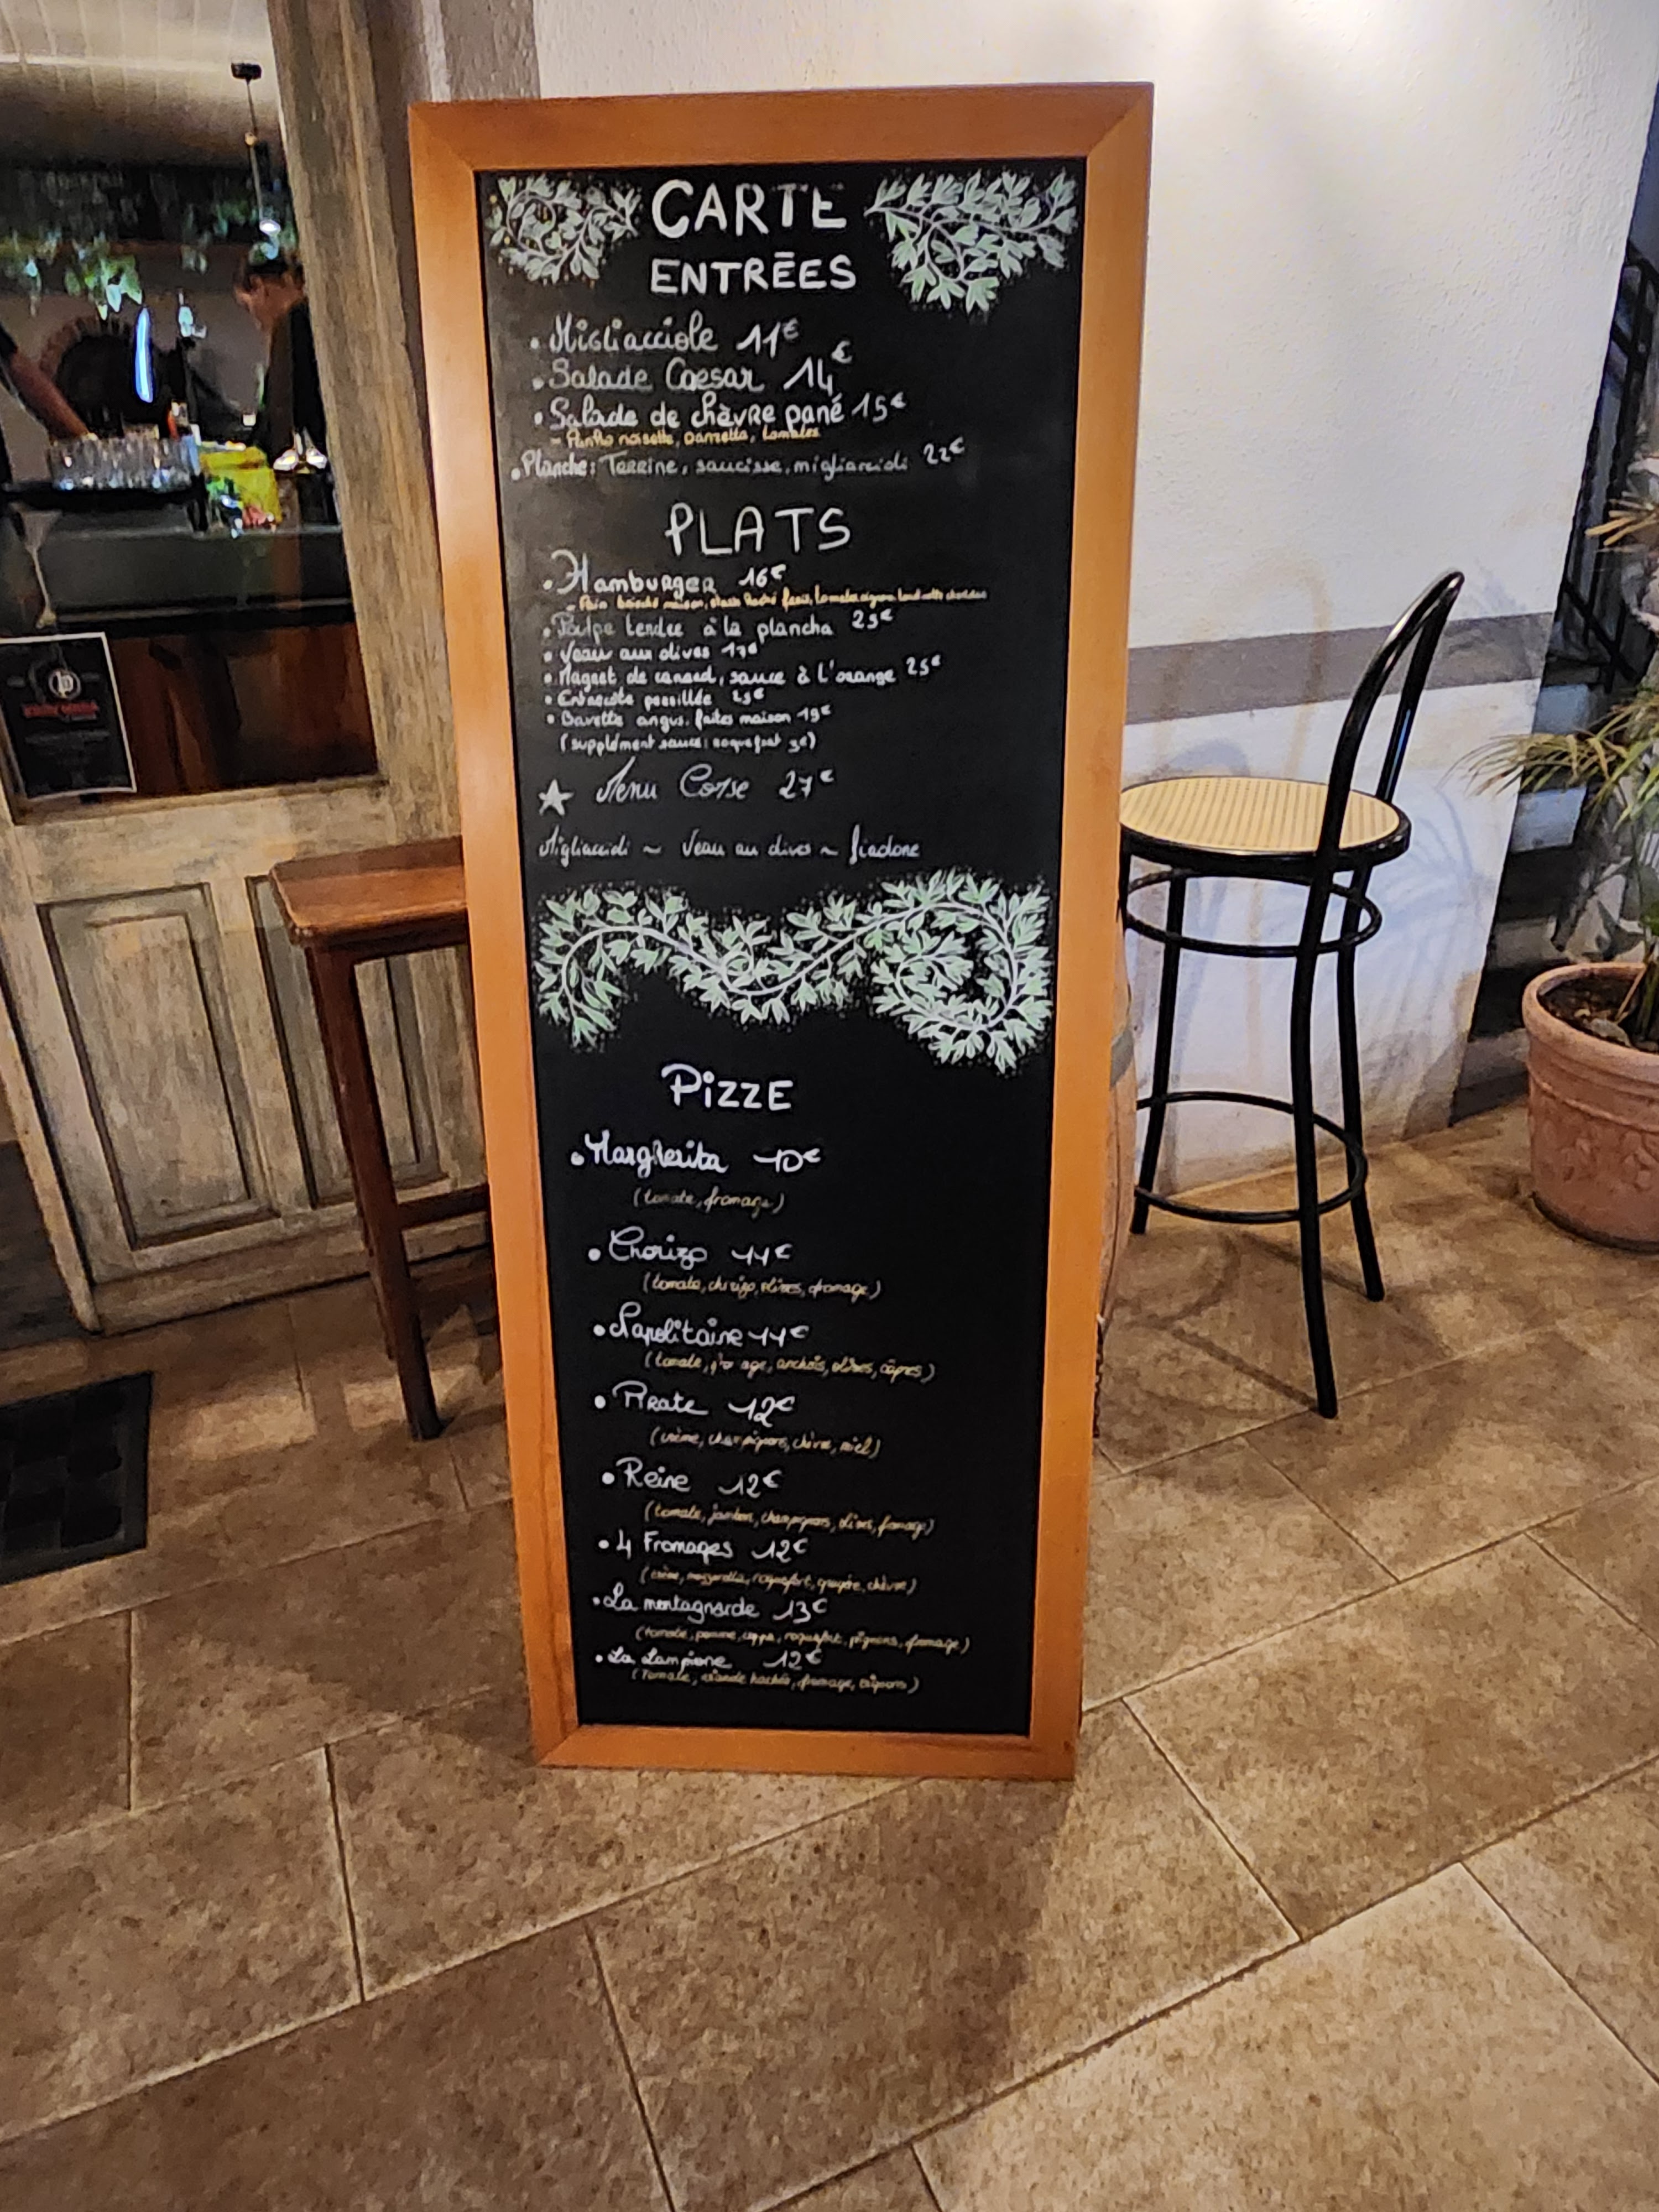 CARTE
ENTRÉES
• Migliacciole 11€
• Salade Caesar 14€
• Salade de chèvre pané 15€
- noisette, pancetta, tomates
• Planche: Terrine, saucisse, migliaccioli 22€
PLATS
• Hamburger 16€
- Pain brioché maison, steak haché frais, tomates oignons cheddar
• Poulpe tendre à la plancha 25€
• Veau aux olives 17€
• Magret de canard, sauce à l'orange 25€
• Entrecôte persillée
• Bavette angus, faites maison 19€
(supplément sauce: roquefort 3€)
Menu Corse 27€
Migliaccioli ~ Veau au olives ~ fiadone
PIZZE
• Margherita 10€
(tomate, fromage)
• Chorizo 11€
(tomate, chorizo, olives, fromage)
• Napolitaine 11€
(tomate, fro age, anchois, olives, câpres)
• Pirate 12€
(crème, champignons, chèvre, miel)
• Reine 12€
(tomate, jambon, champignons, olives, fromage)
• 4 Fromages 12€
(crème, mozzarella, roquefort, gruyère, chèvre)
• La montagnarde 13€
(tomate, pomme, coppa, roquefort, pignons, fromage)
• La Lampione 12€
(Tomate, viande hachée, fromage, oignons)